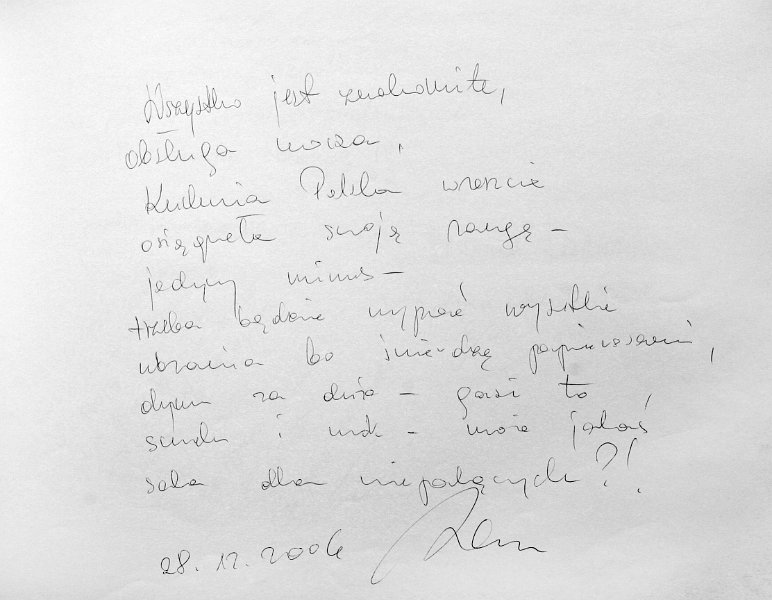 Wszystko jest znakomite,
obsługa urocza,
Kuchnia Polska wreszcie
osiągnęła swoją rangę –
jedyny minus –
trzeba będzie wyprać wszystkie
ubrania bo śmierdzą papierosami,
dymu za dużo – gasi to
smak i – może jakaś
sala dla niepalących?!
28.12.2006